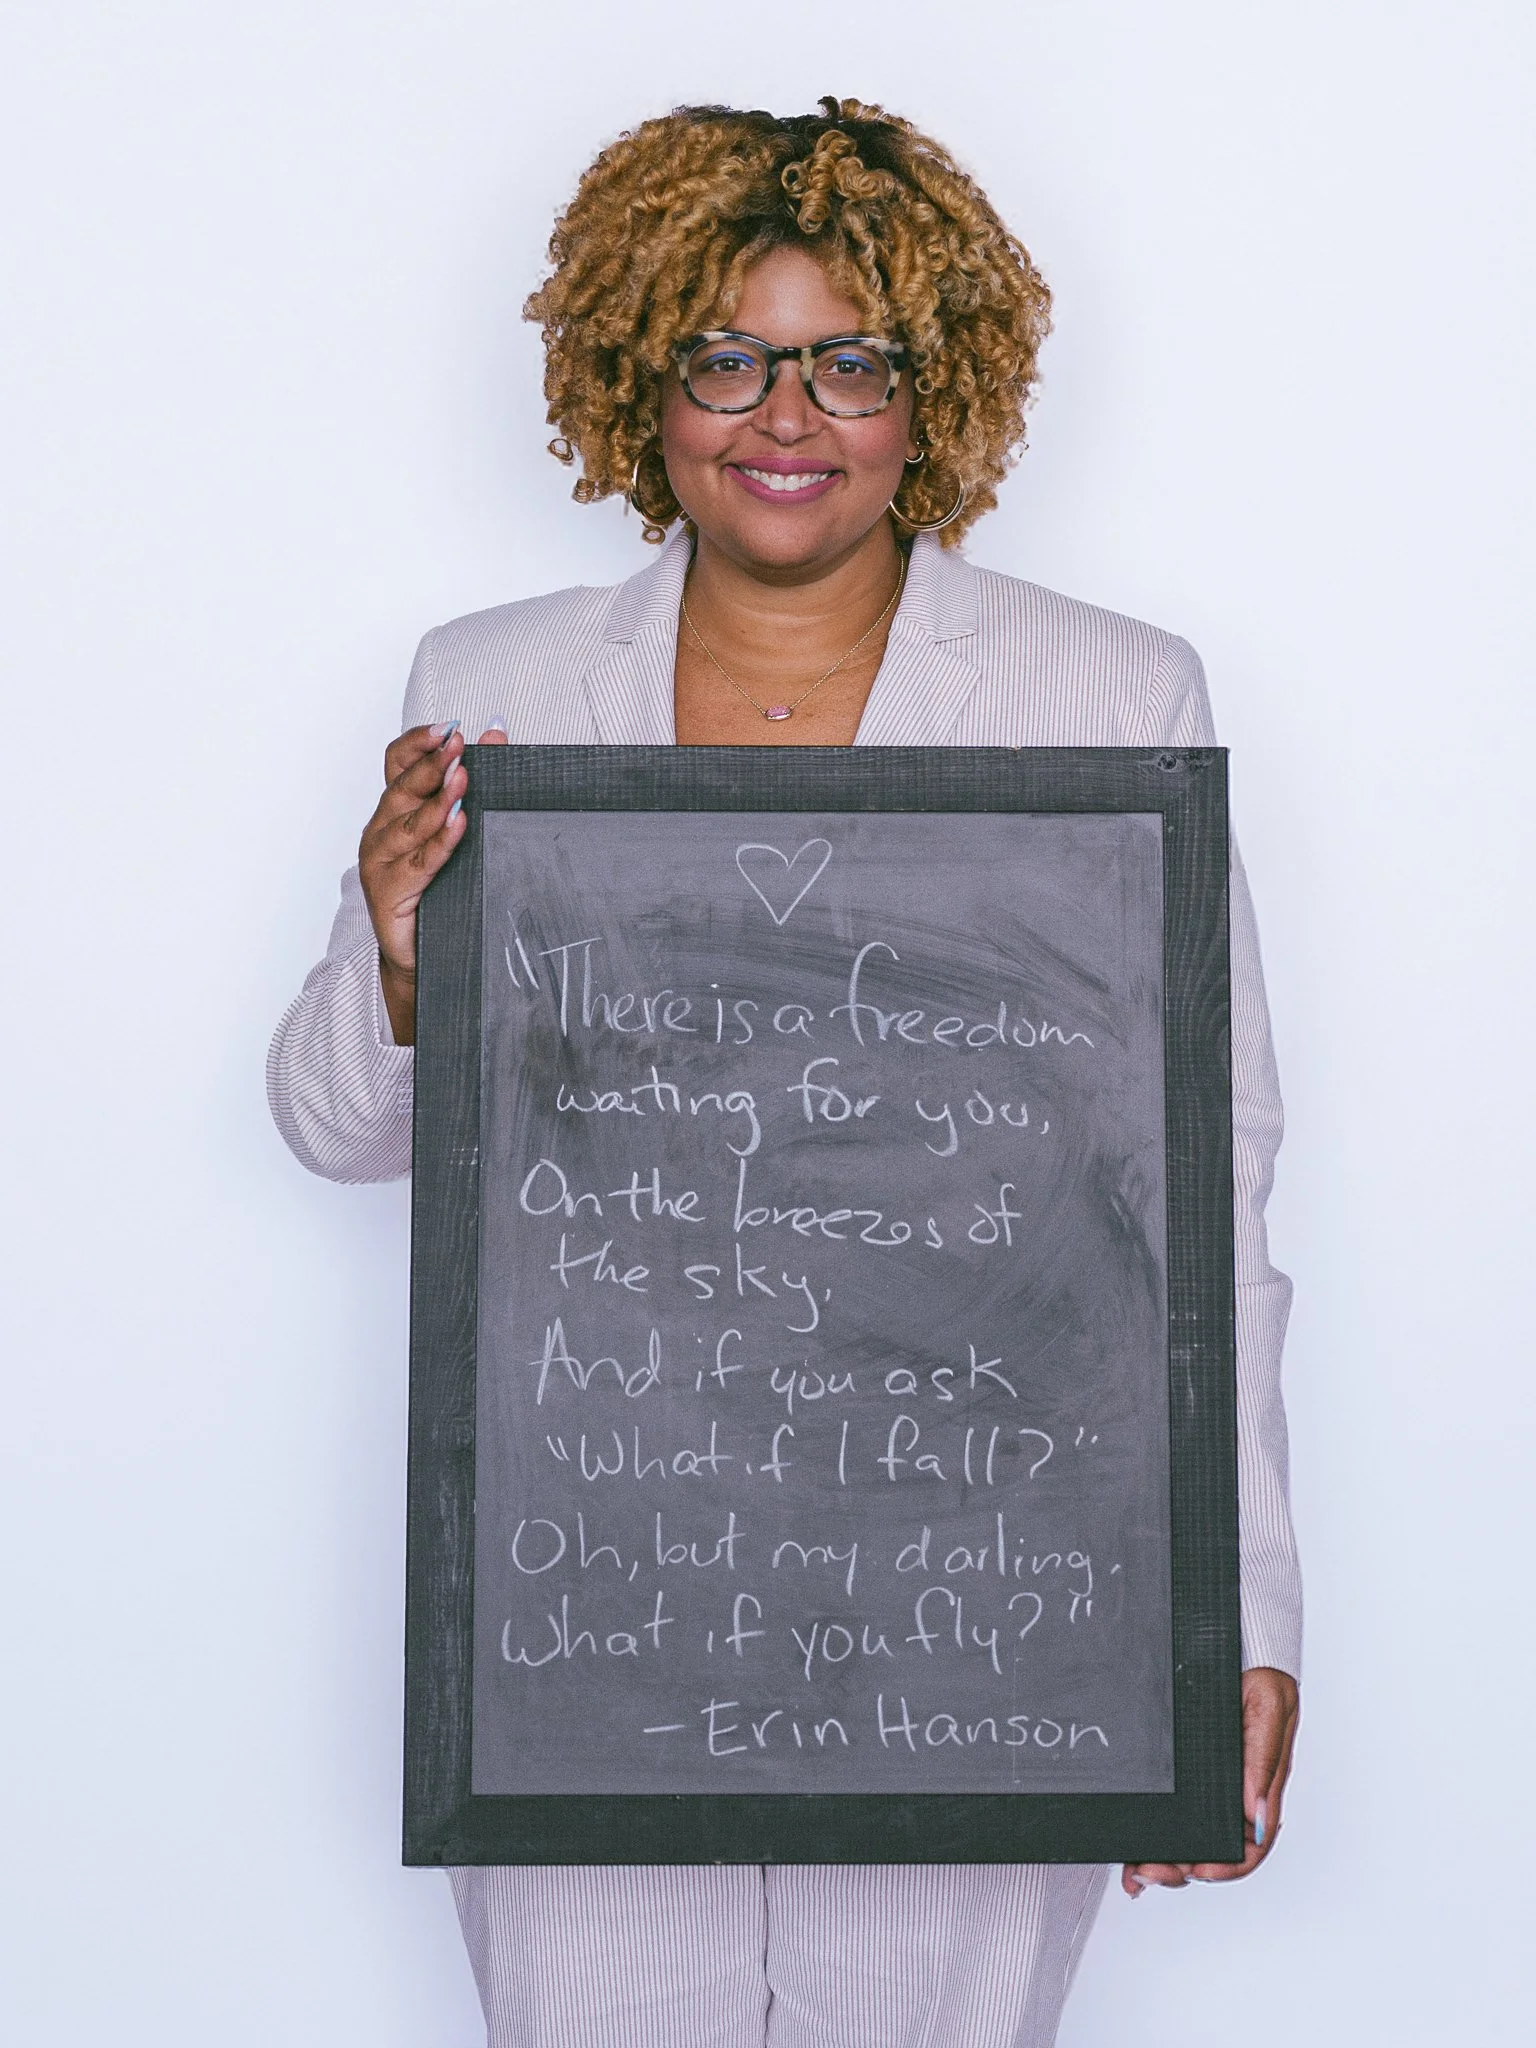 "There is a freedom
waiting for you,
On the breezes of
the sky,
And if you ask
"What if I fall?"
Oh, but my darling,
What if you fly?"
- Erin Hanson